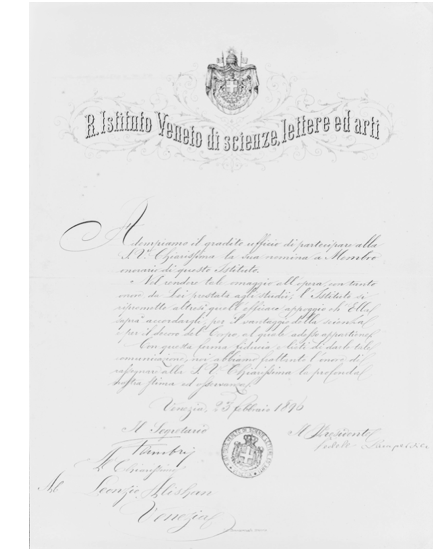 R. Istituto Veneto di scienze, lettere ed arti
Adempiamo il gradito ufficio di partecipare alla
S. V. Chiarissima la sua nomina a Membro
onorario di questo Istituto.
Nel rendere tale omaggio all'opera con tanto
da Lei prestata agli studi, l'Istituto si
altresì quell'efficace appoggio ch'Ella
per il vantaggio della scienza
per il decoro del Corpo al quale adesso appartiene.
Con questa ferma fiducia, e lieti di darle tale
comunicazione, noi abbiamo frattanto l'onore di
alla S. V. Chiarissima la profonda
nostra stima ed osservanza.
Venezia, 23 febbraio 1896
Il Segretario
Il Presidente
Chiarissimo
Leonzio Alishan
Venezia